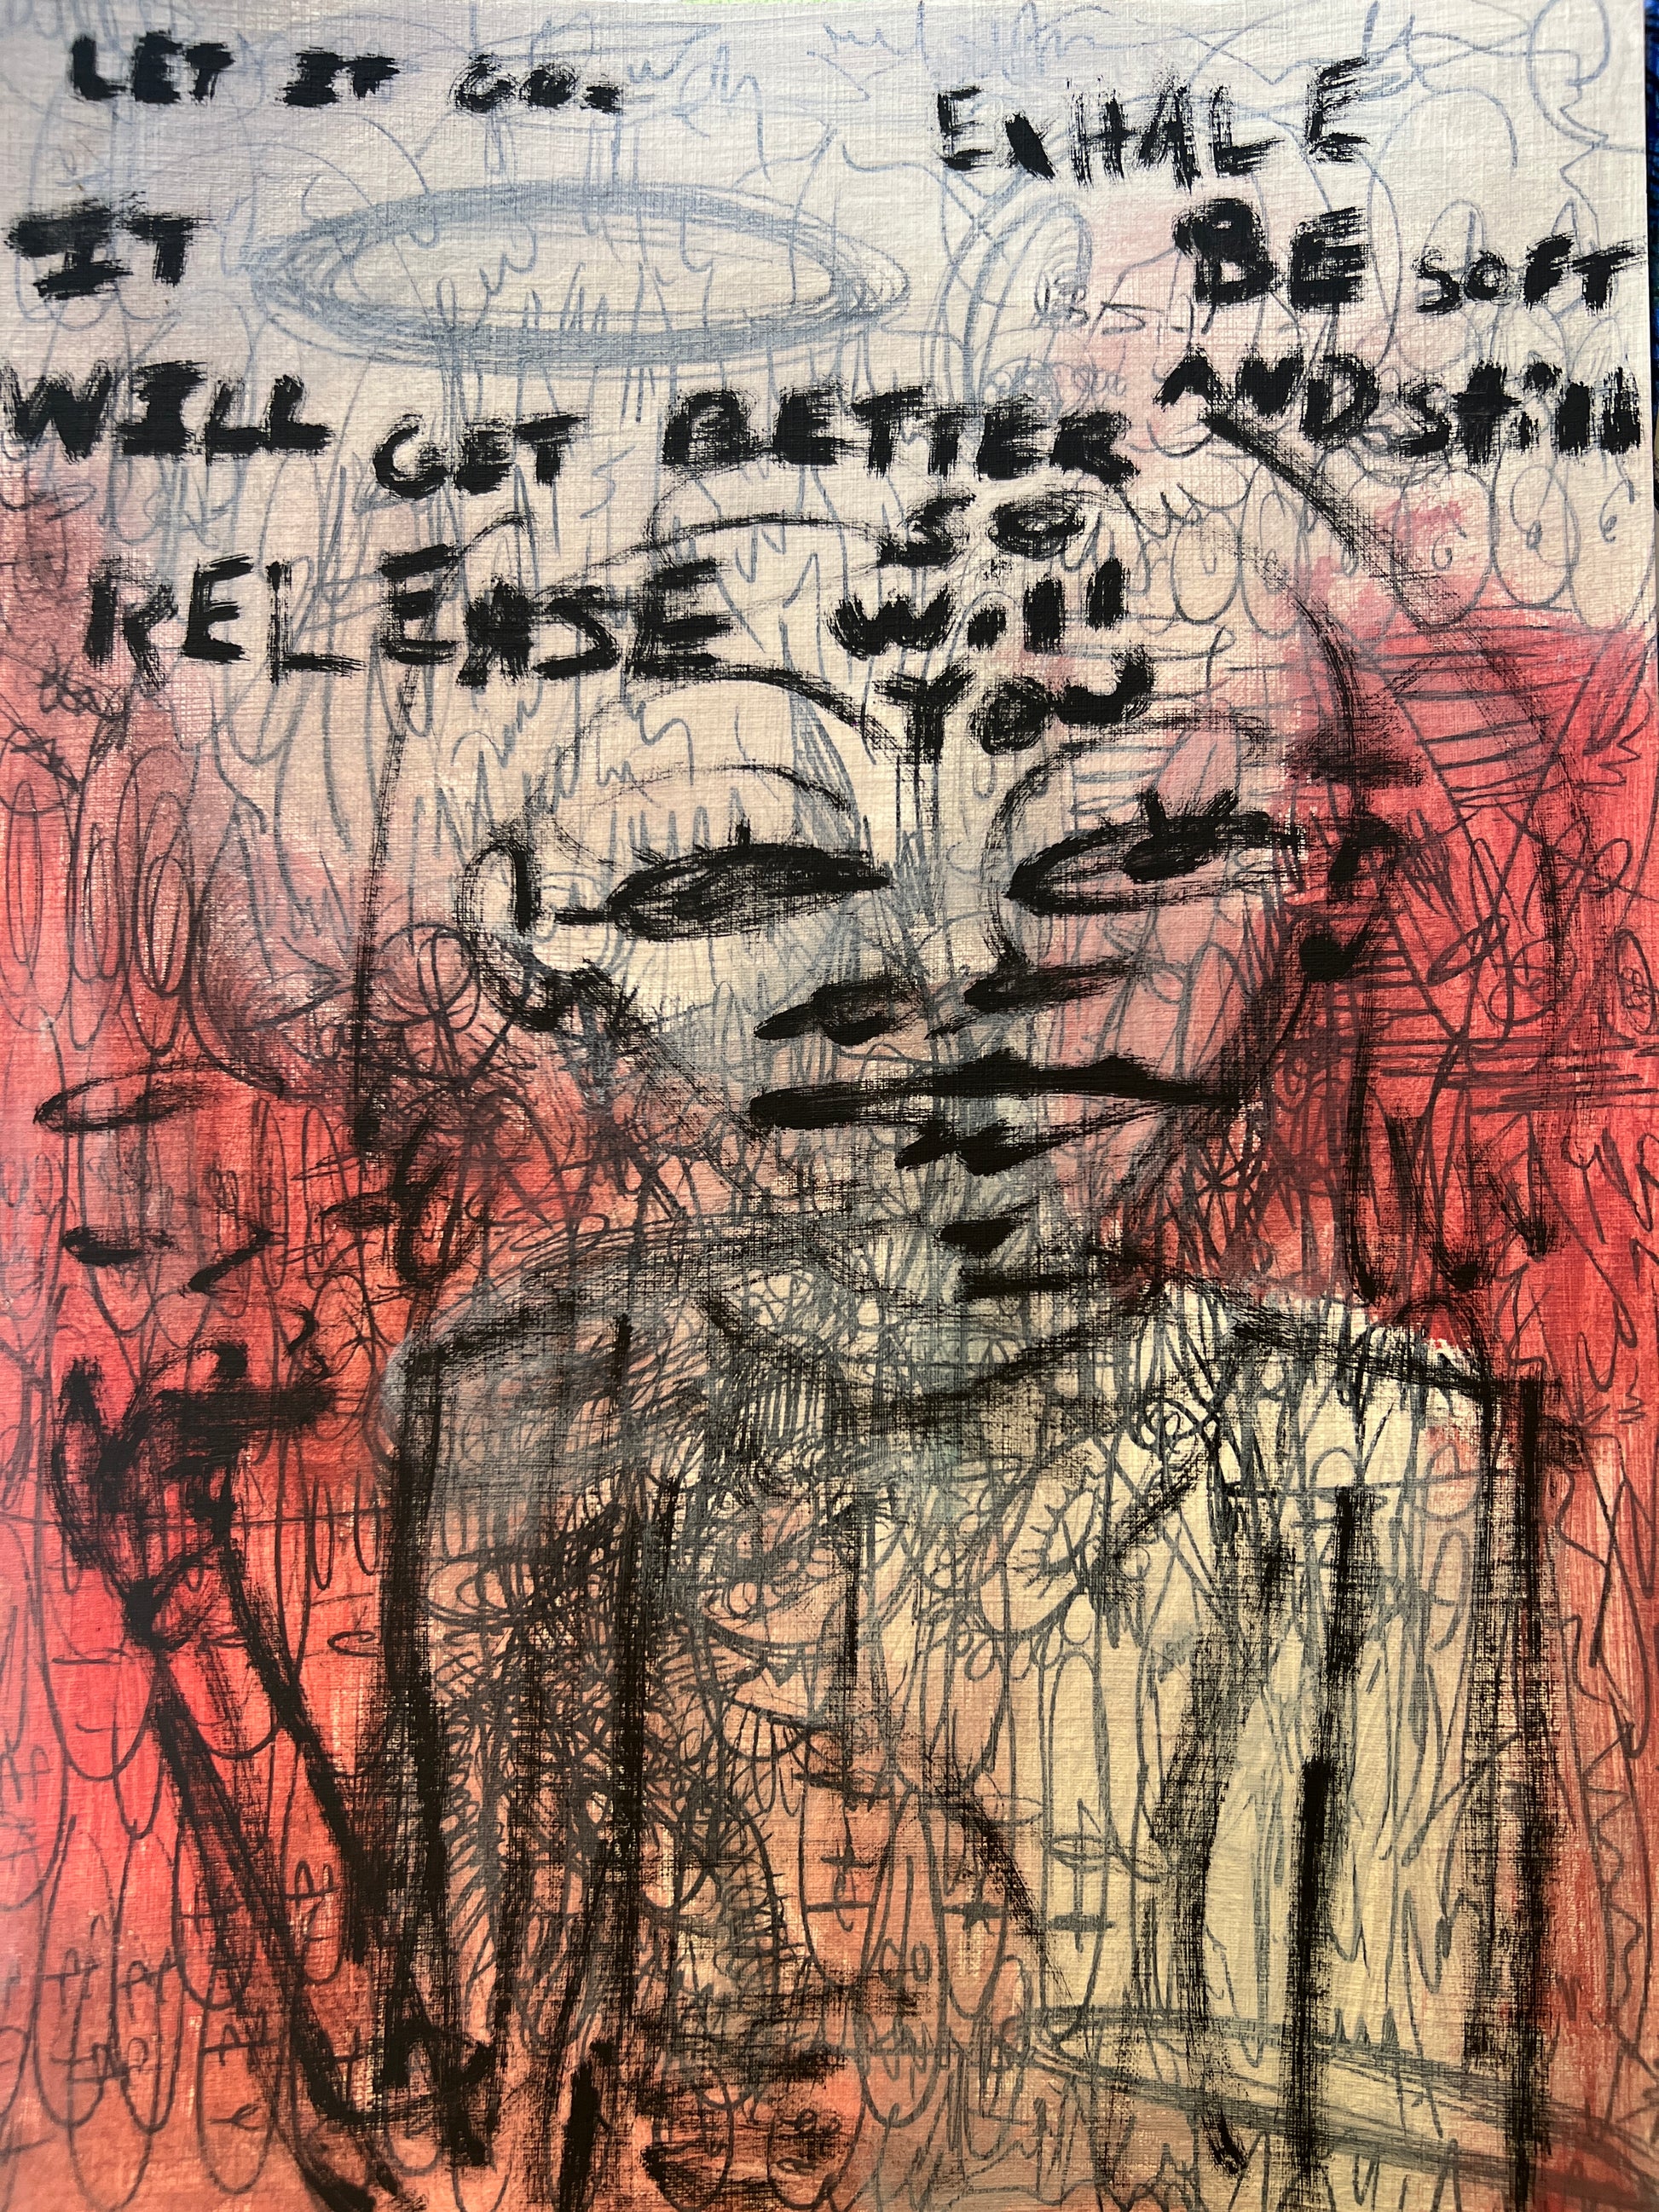 LET IT GO.
EXHALE
IT
BE SOFT
WILL GET BETTER
AND STILL
SO
RELEASE WILL
YOU